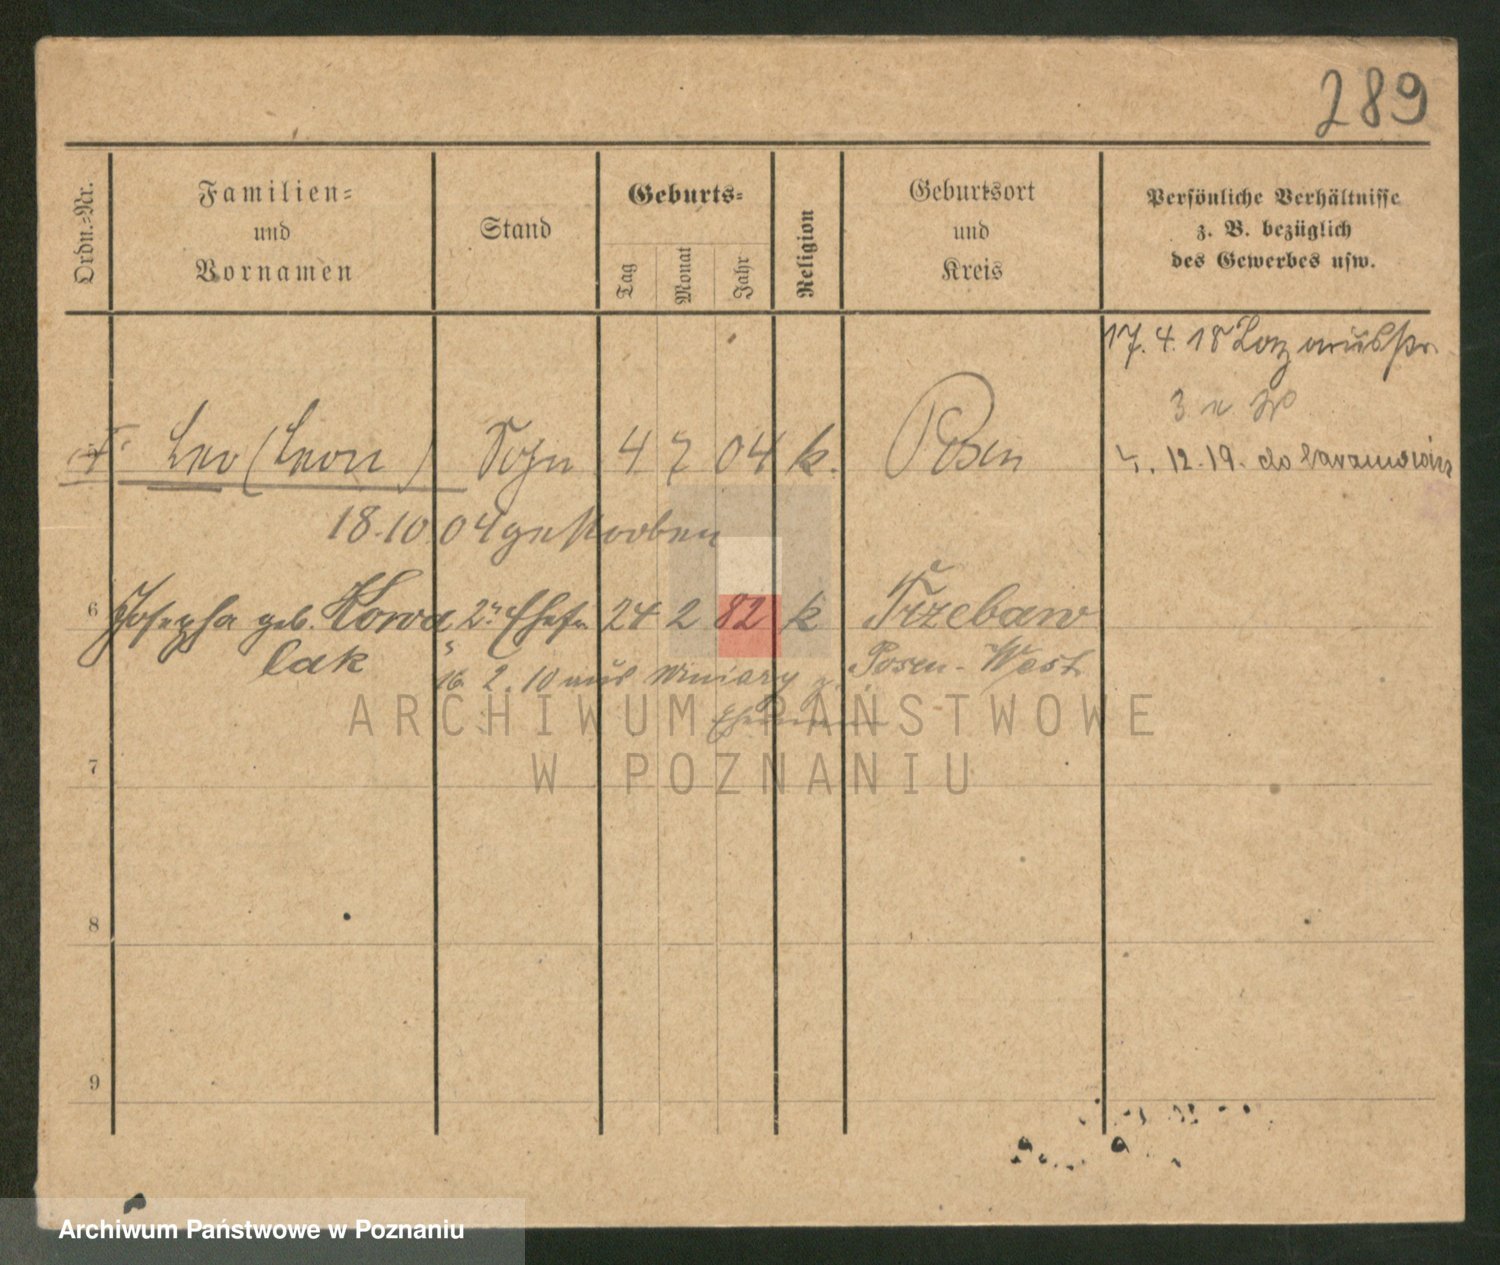 289
Ordn.-Nr.
Familien-
und
Vornamen
Stand
Geburts-
Tag
Monat
Jahr
Religion
Geburtsort
und
Kreis
Persönliche Verhältnisse
z. B. bezüglich
des Gewerbes usw.
17. 4. 18 Lazarusstr.
3 n W
Leo (Leon) Sohn 4 7 04 k. Posen
12.19. do
18.10 04 gestorben
6 Josepha geb. Kowa 2te Ehefr. 24 2 82 k Trzebaw
lak
16. 2. 10 aus Winiary z. Posen-West
ARCHIWUM PAŃSTWOWE
W POZNANIU
7
8
9
Archiwum Państwowe w Poznaniu